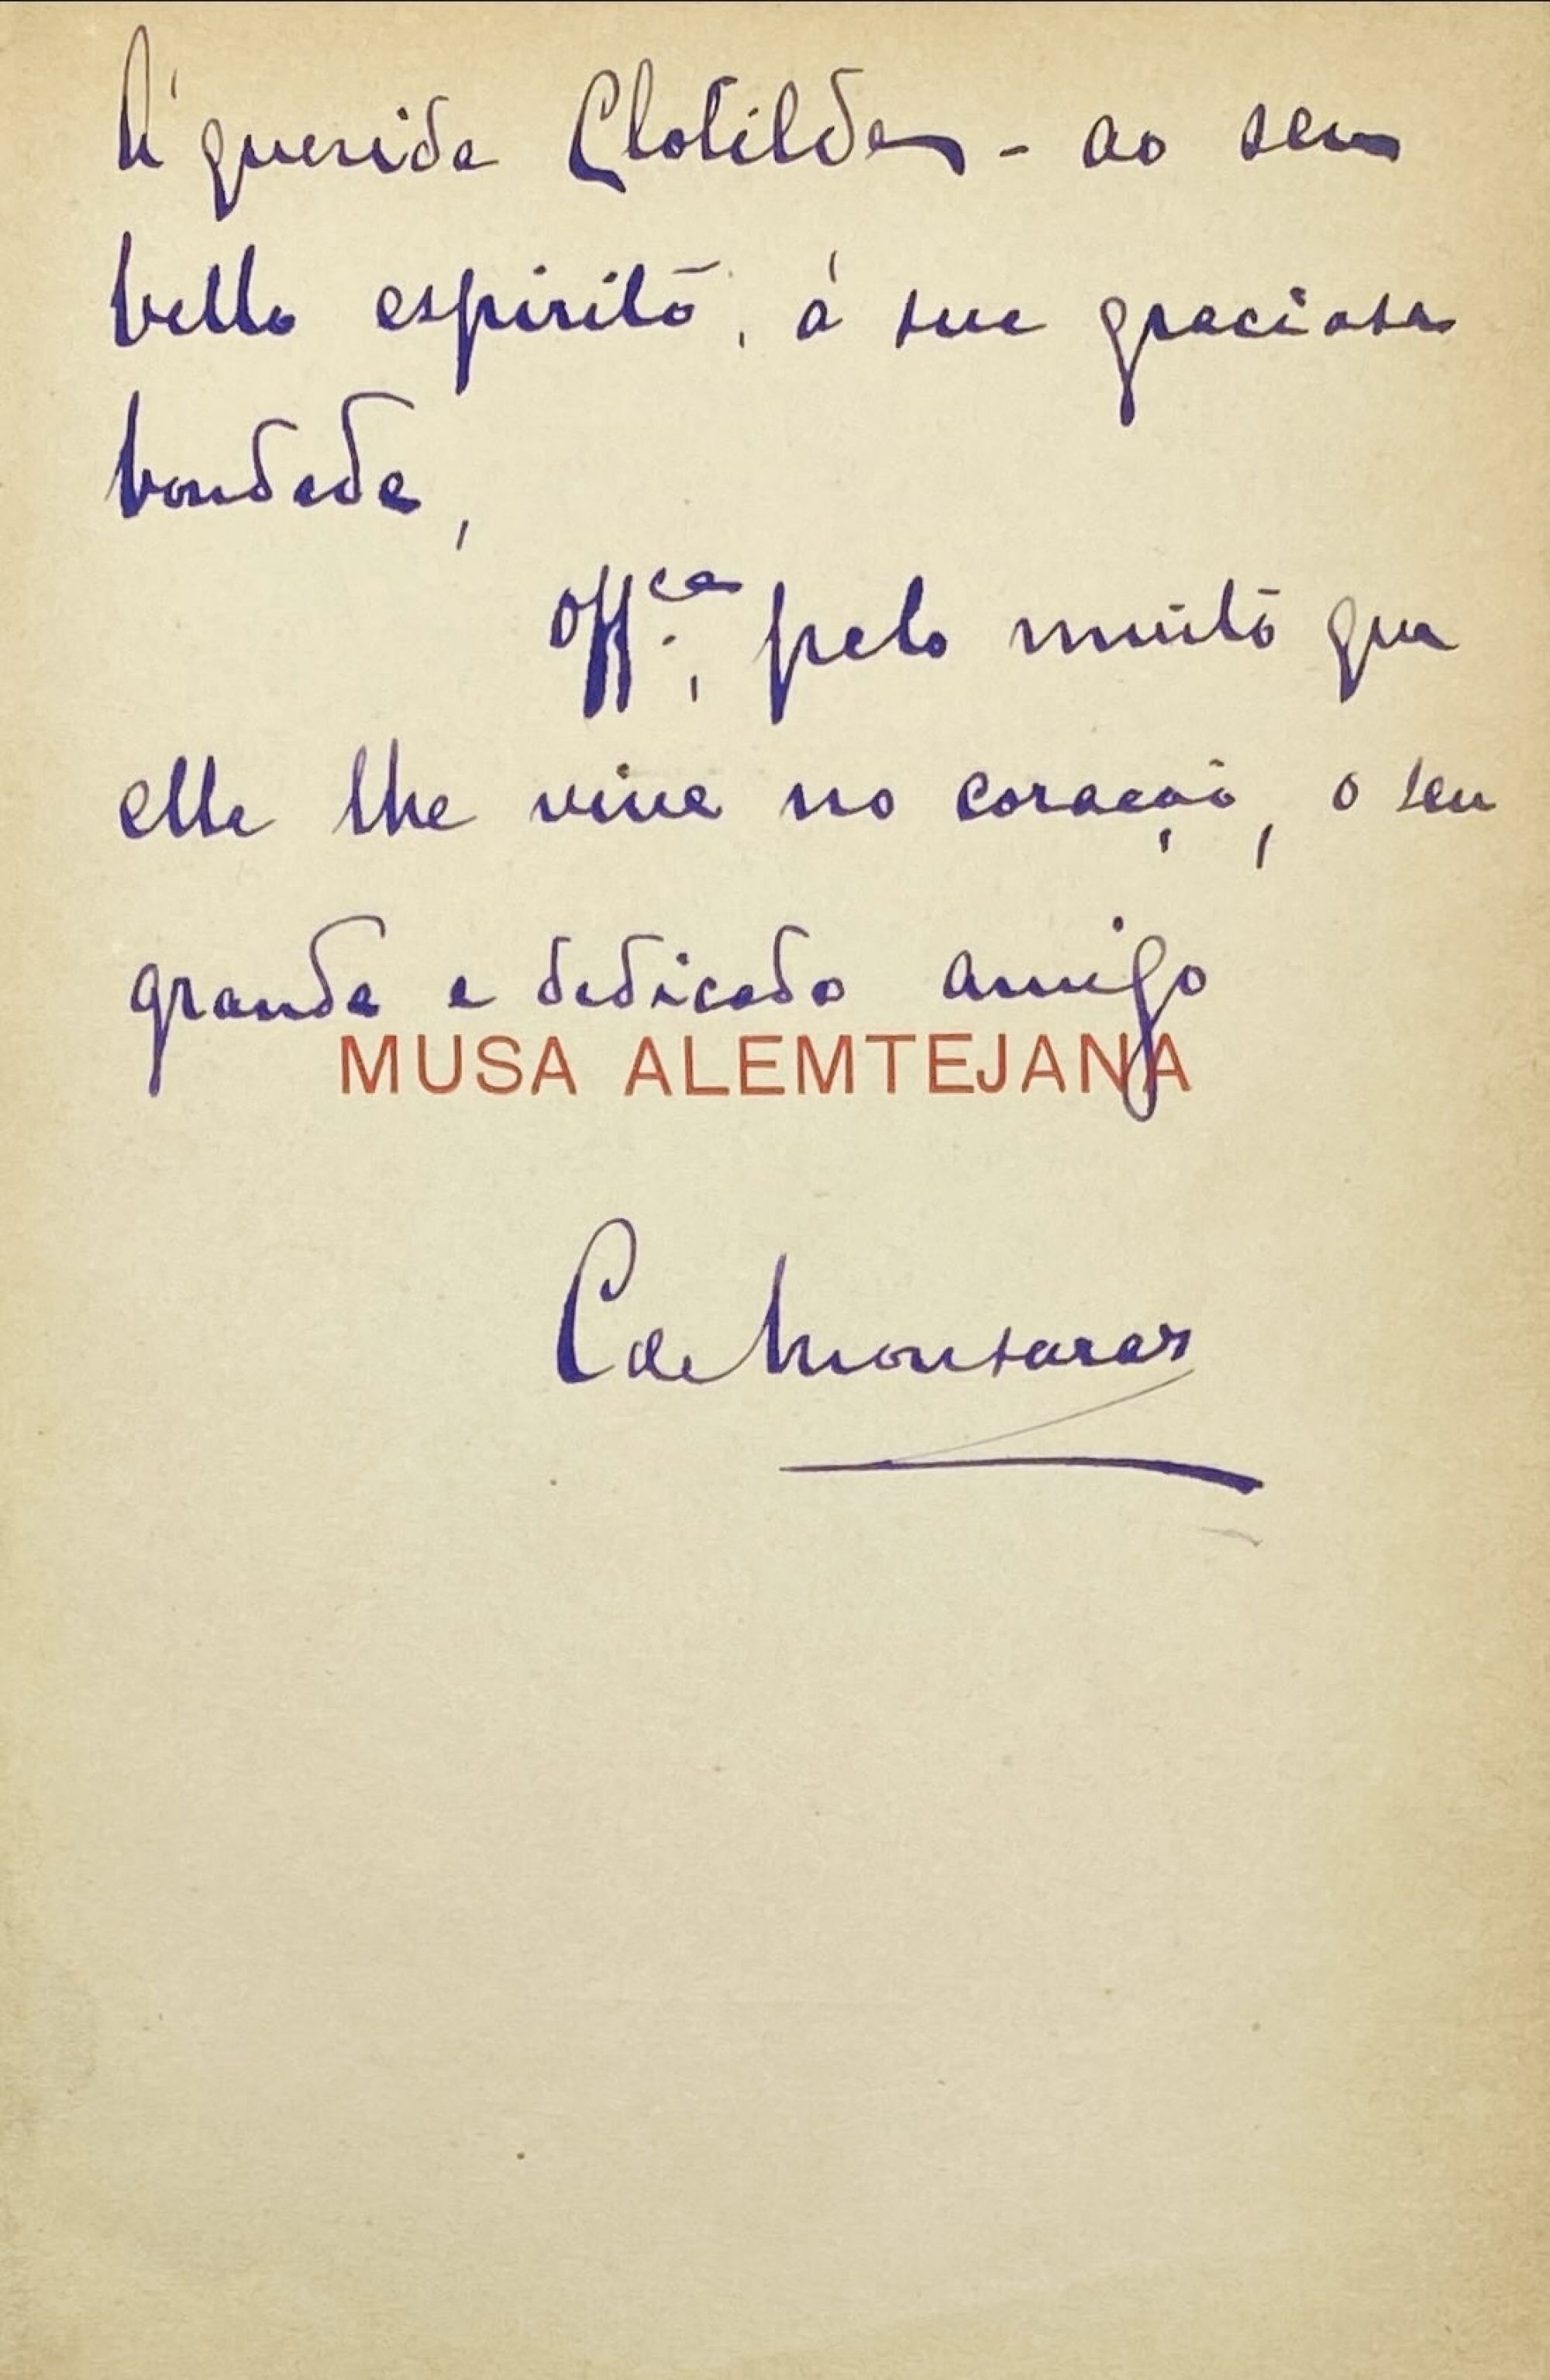 Á querida Clotilde - ao seu
bello espirito, á sua graciosa
bondade,
Off.ce, pelo muito que
ella lhe vive no coração, o seu
grande e dedicado amigo
MUSA ALEMTEJANA
C de Monsaraz